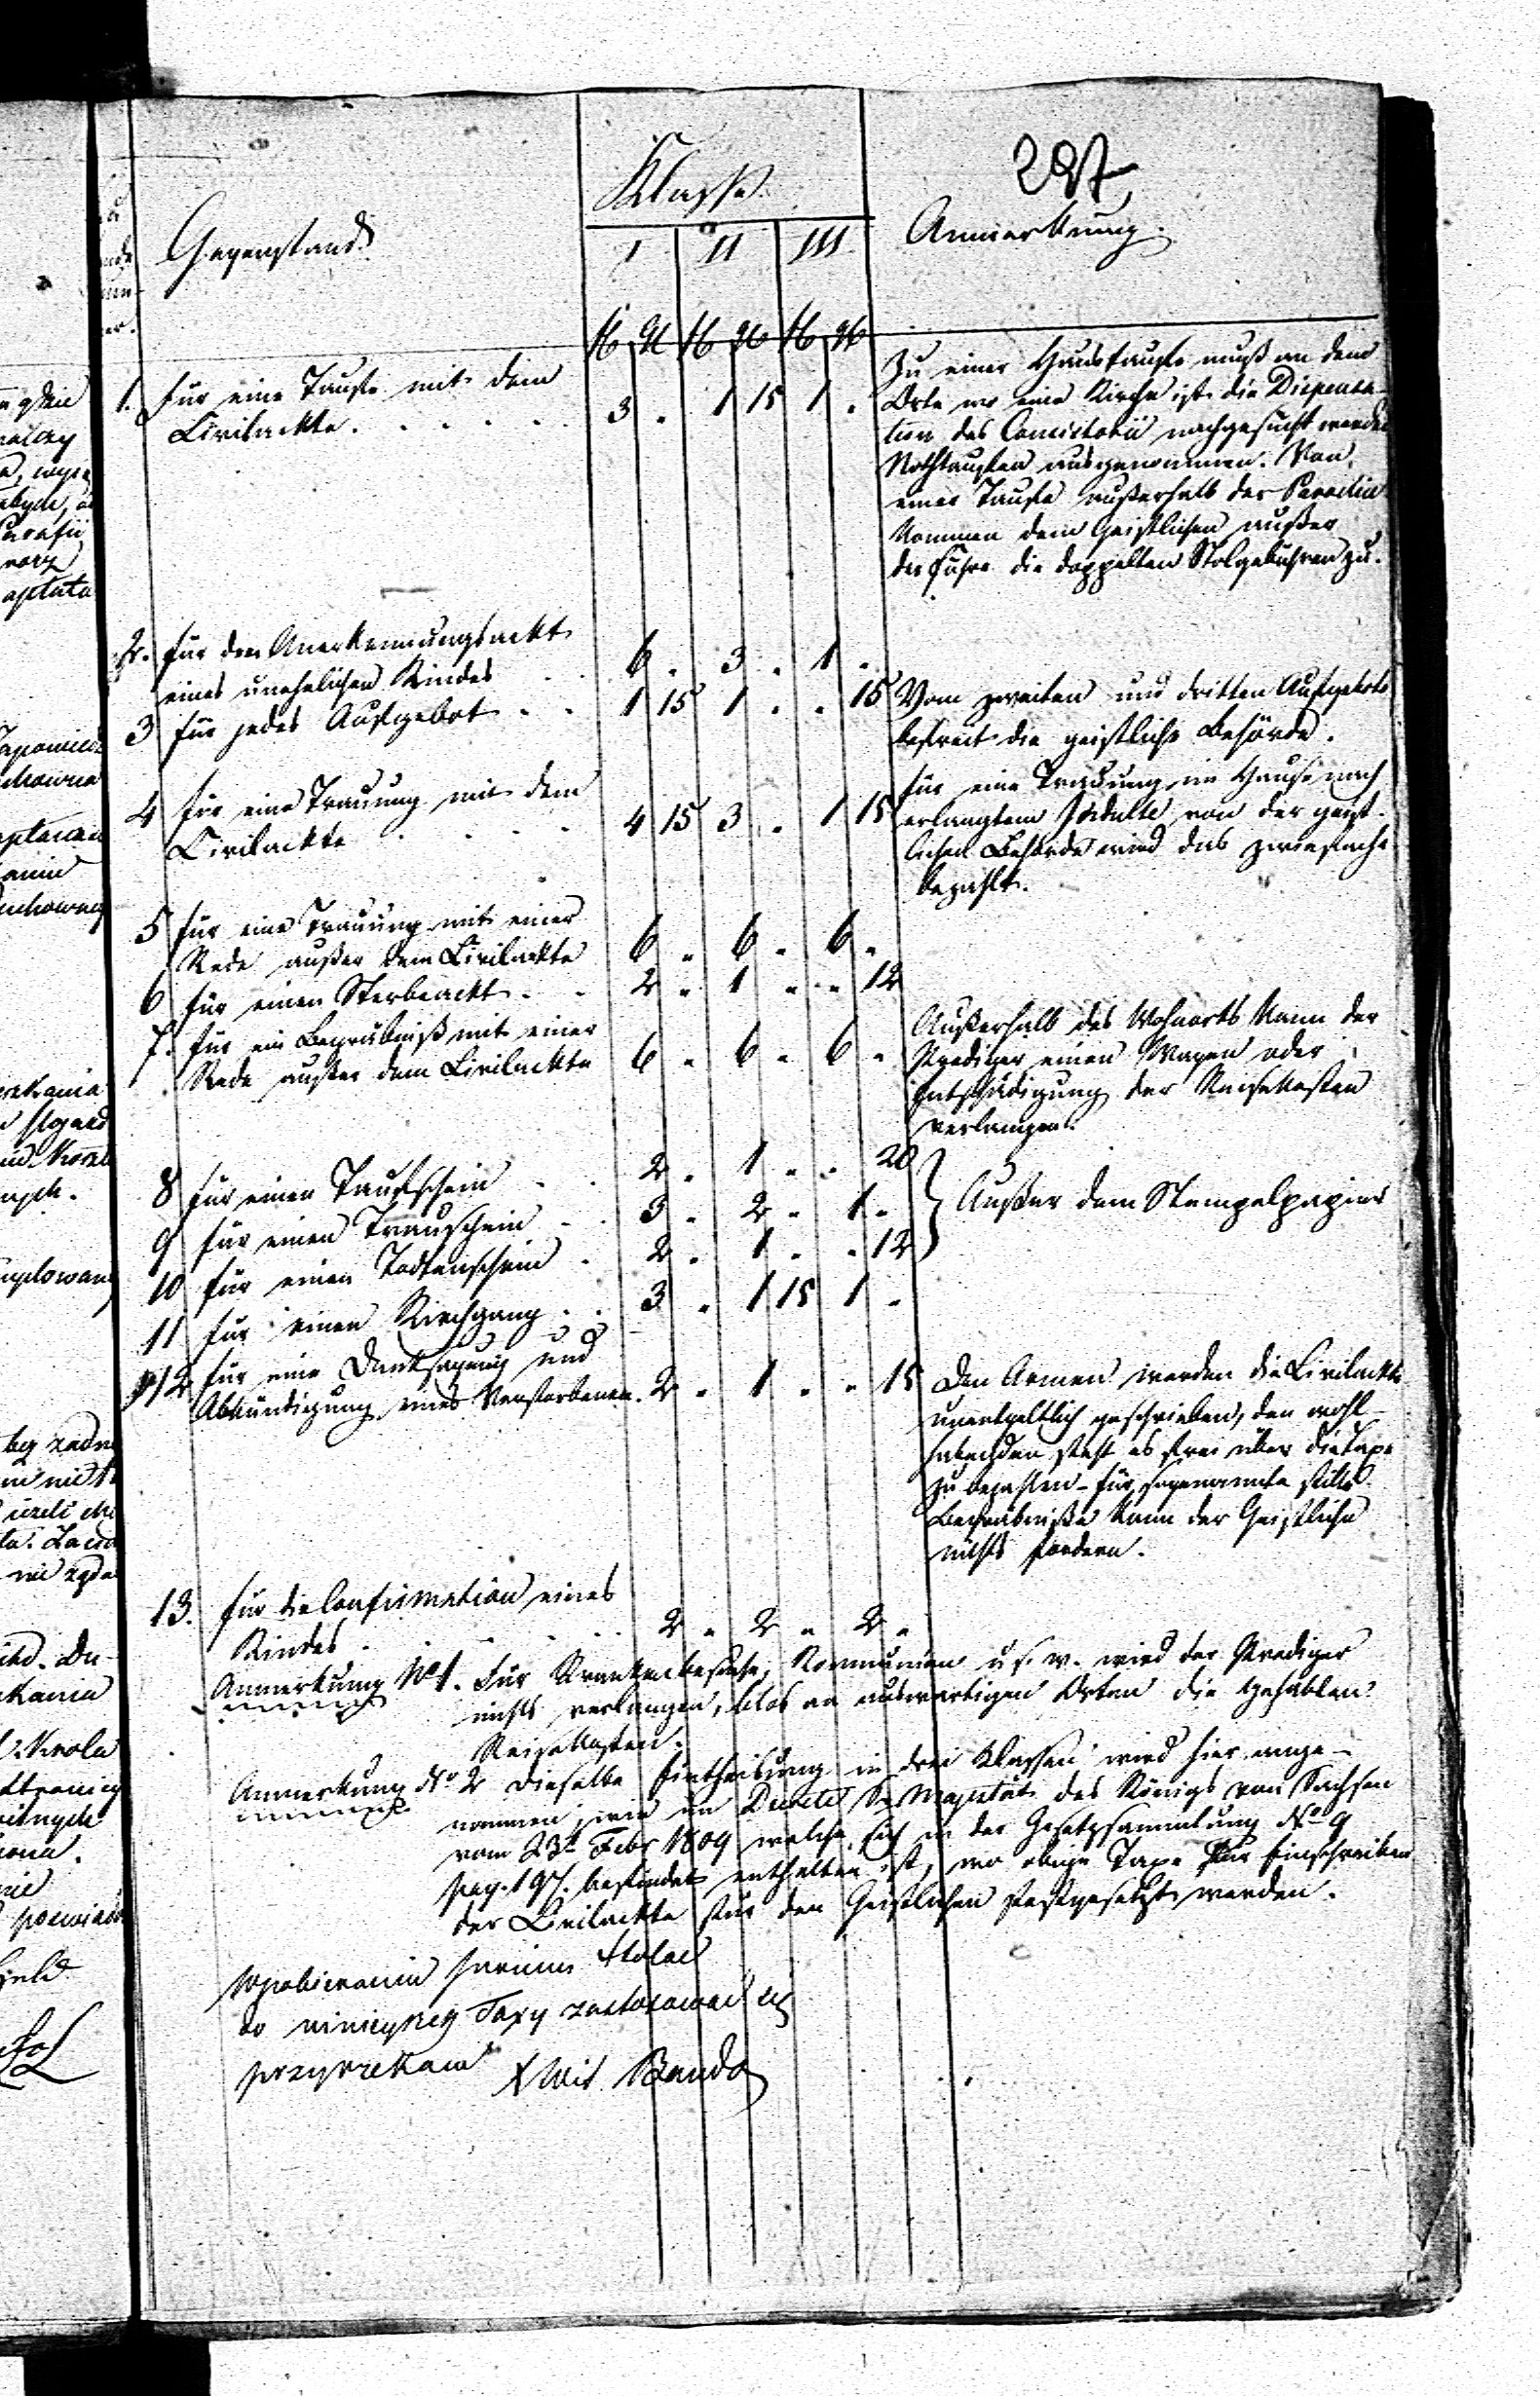 287
Klasse
Gegenstand
Anmerkung.
I II III
1. Für eine Taufe mit dem
Civilackte. . . . . . 3 " 1 15 1 "
Zu einer Haustaufe muß an dem
Orte wo eine Kirche ist die Dispensa-
tion des Consistorii nachgesucht werden
Nothtaufen ausgenommen. Von
einer Taufe außerhalb der Parochie
kommen dem Geistlichen außer
der Fuhre die doppelten Stolgebuhren zu.
2. Für den Anerkennungsackt
eines unehelichen Kindes . . 6 " 3 " 1 "
3 Für jedes Aufgebot . . 1 15 1 " " 15
Vom zweiten und dritten Aufgebote
befreit die geistliche Behörde.
4 Für eine Trauung mit dem
Civilackte . . . . 4 15 3 " 1 15
Für eine Trauung im Hause nach
erlangtem Indulte von der geist-
lichen Behörde wird das zweifache
bezahlt.
5 Für eine Trauung mit einer
Rede außer dem Civilackte 6 " 6 " 6 "
6 Für einen Sterbeackt . . 2 " 1 " " 12
7. Für ein Begräbniß mit einer
Rede außer dem Civilackte 6 " 6 " 6 "
Außerhalb des Wohnorts kann der
Prediger einen Wagen oder
Entschädigung der Reisekosten
verlangen.
8 Für einen Taufschein . . 2 " 1 " " 20
9 Für einen Trauschein . . 3 " 2 " 1 "
Außer dem Stempelpapier
10 Für einen Todtenschein . 2 " 1 " " 12
11 Für einen Kirchgang . . 3 " 1 15 1 "
12 Für eine Danksagung und
Abkündigung eines Verstorbenen. 2 " 1 " " 15
Den Armen werden die Civilackte
unentgeltlich geschrieben, den wohl-
habenden steht es frei über die Taxe
zu bezahlen - für sogenannte stille
Begräbniße kann der Geistliche
nichts fordern.
13. Für die Confirmation eines
Kindes . . . . 2 " 2 " 2 "
Anmerkung No 1. Für Krankenbesuche, Kommunion u. s. w. wird der Prediger
nichts verlangen, blos an auswärtigen Orten die
Reisekosten.
Anmerkung No 2 Dieselbe Eintheilung in drei Klassen wird hier ange-
nommen, wie im Decrete Sr Majestät des Königs von Sachsen
vom 23t Febr 1809 welche sich in der Gesetzsammlung No 9
pag. 197. befindet enthalten ist, wo obige Taxe für Einschreiben
der Civilackte für den Geistlichen festgesetzt werden.
W pobieraniu Stolae
do niniejszej Taxy zastosować się
przyrzekam
X Wit Banda